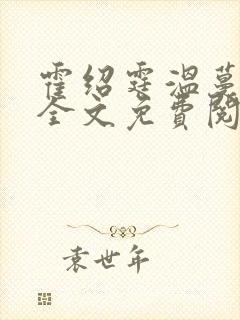 霍绍霆温蔓
全文免费阅
袁世年